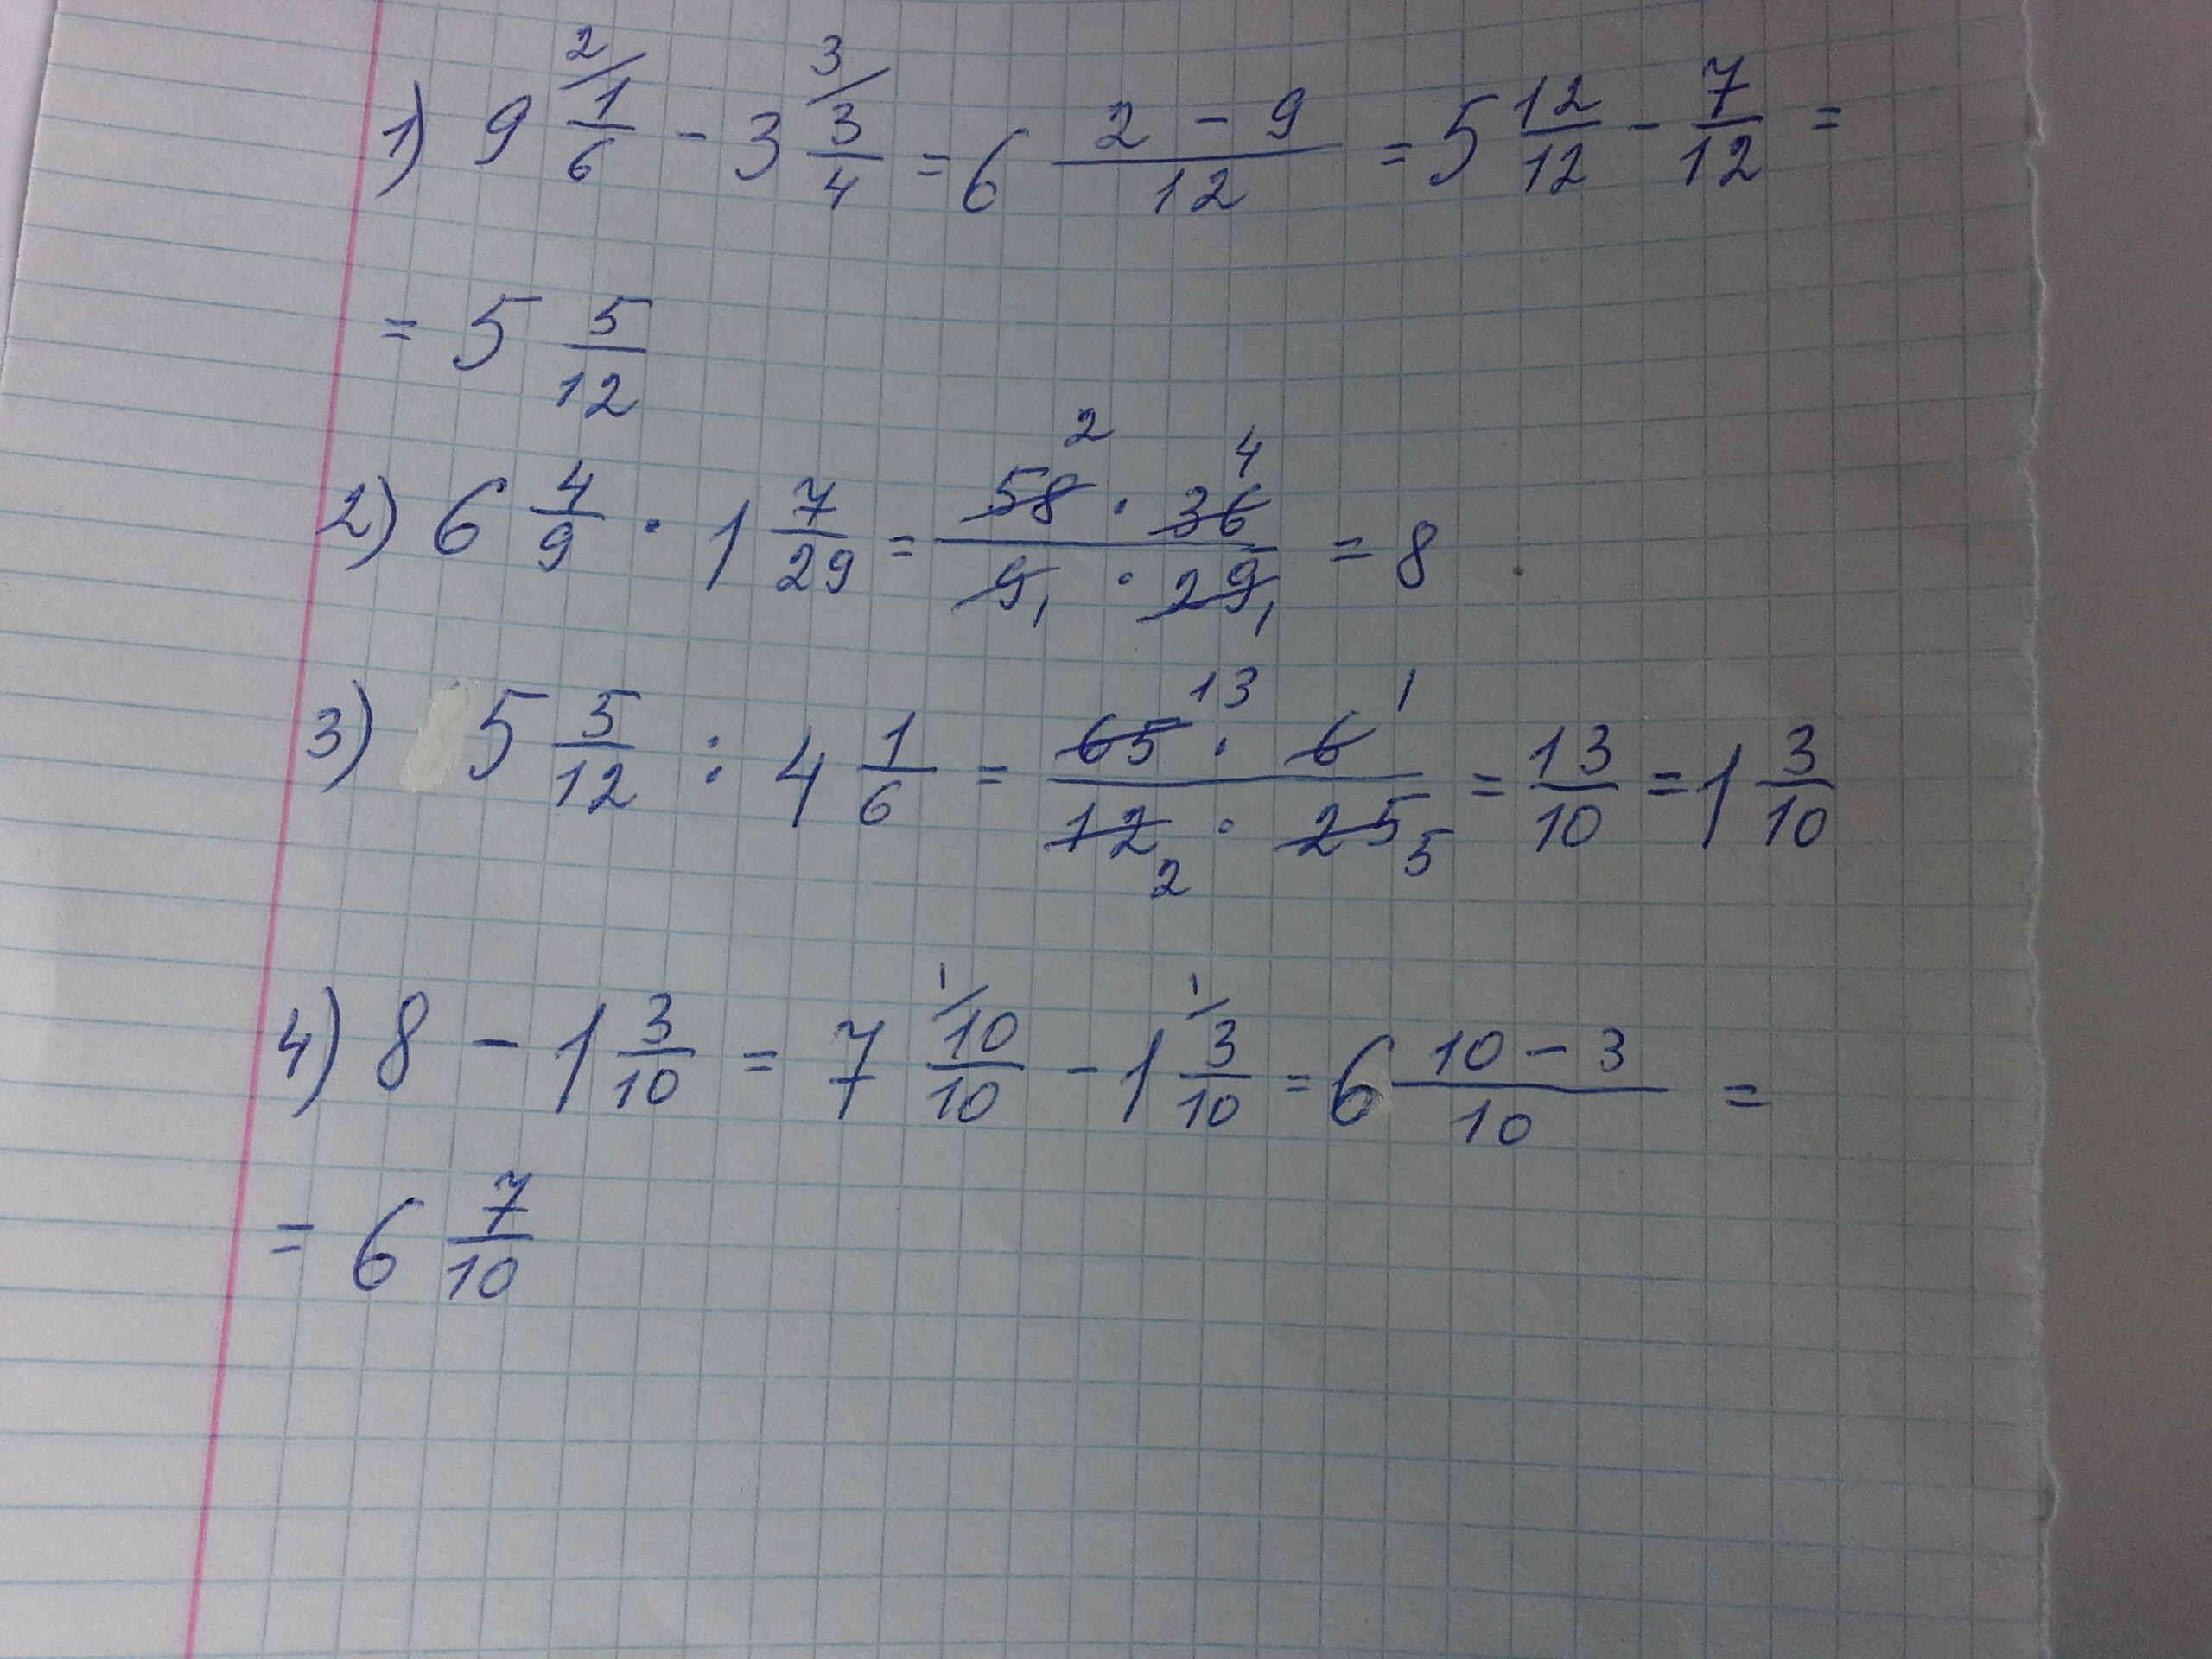 1) 9 ²⁄ 1/6 - 3 ³⁄ 3/4 = 6 (2 - 9)/12 = 5 12/12 - 7/12 =
= 5 5/12
2) 6 4/9 · 1 7/29 = (58 ² · 36 ⁴)/(9 ₁ · 29 ₁) = 8
3) 5 5/12 : 4 1/6 = (65 ¹³ · 6 ¹)/(12 ₂ · 25 ₅) = 13/10 = 1 3/10
4) 8 - 1 3/10 = 7 ¹⁄ 10/10 - 1 ¹⁄ 3/10 = 6 (10 - 3)/10 =
= 6 7/10